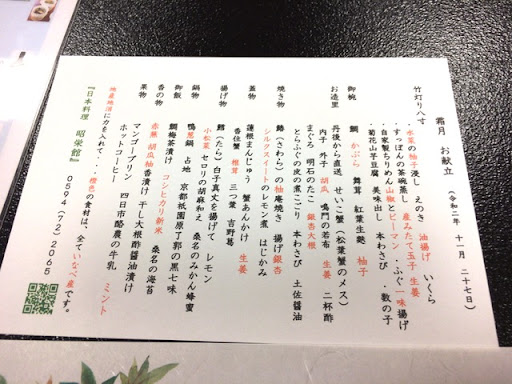 霜月 お献立 (令和二年 十一月 二十七日)
竹灯り八寸
・水菜の柚子浸し えのき 油揚げ いくら
・すっぽんの茶碗蒸し 産みたて玉子 生姜
・自家製ちりめん山椒とピーマン ・ふぐ一味揚げ
・菊花山芋豆腐 美味出し 本わさび ・数の子
御椀 鯛 かぶら 舞茸 紅葉生麩 柚子
お造里 丹後から直送 せいこ蟹(松葉蟹のメス)
内子 外子 胡瓜 鳴門の若布 生姜 二杯酢
まぐろ 明石のたこ 銀杏大根
とらふぐの皮の煮こごり 本わさび 土佐醤油
焼き物 鰆(さわら)の柚庵焼き 揚げ銀杏
シルクスイートのレモン煮 はじかみ
蓋物 蓮根まんじゅう 蟹あんかけ 生姜
香住蟹 椎茸 三つ葉 吉野葛
揚げ物 鱈(たら)白子真丈を揚げて レモン
小松菜 セロリの胡麻和え 桑名のみかん蜂蜜
鍋物 鴨葱鍋 占地 京都祇園原了郭の黒七味
御飯 鯛梅茶漬け コシヒカリ新米 桑名の海苔
香の物 赤蕪 胡瓜柚香漬け 干し大根酢醤油漬け
果物 マンゴープリン ミント
ホットコーヒー 四日市酪農の牛乳
地産地消に力を入れて・・橙色の食材は、全ていなべ産です。
『日本料理 昭栄館』 0594(72)2065